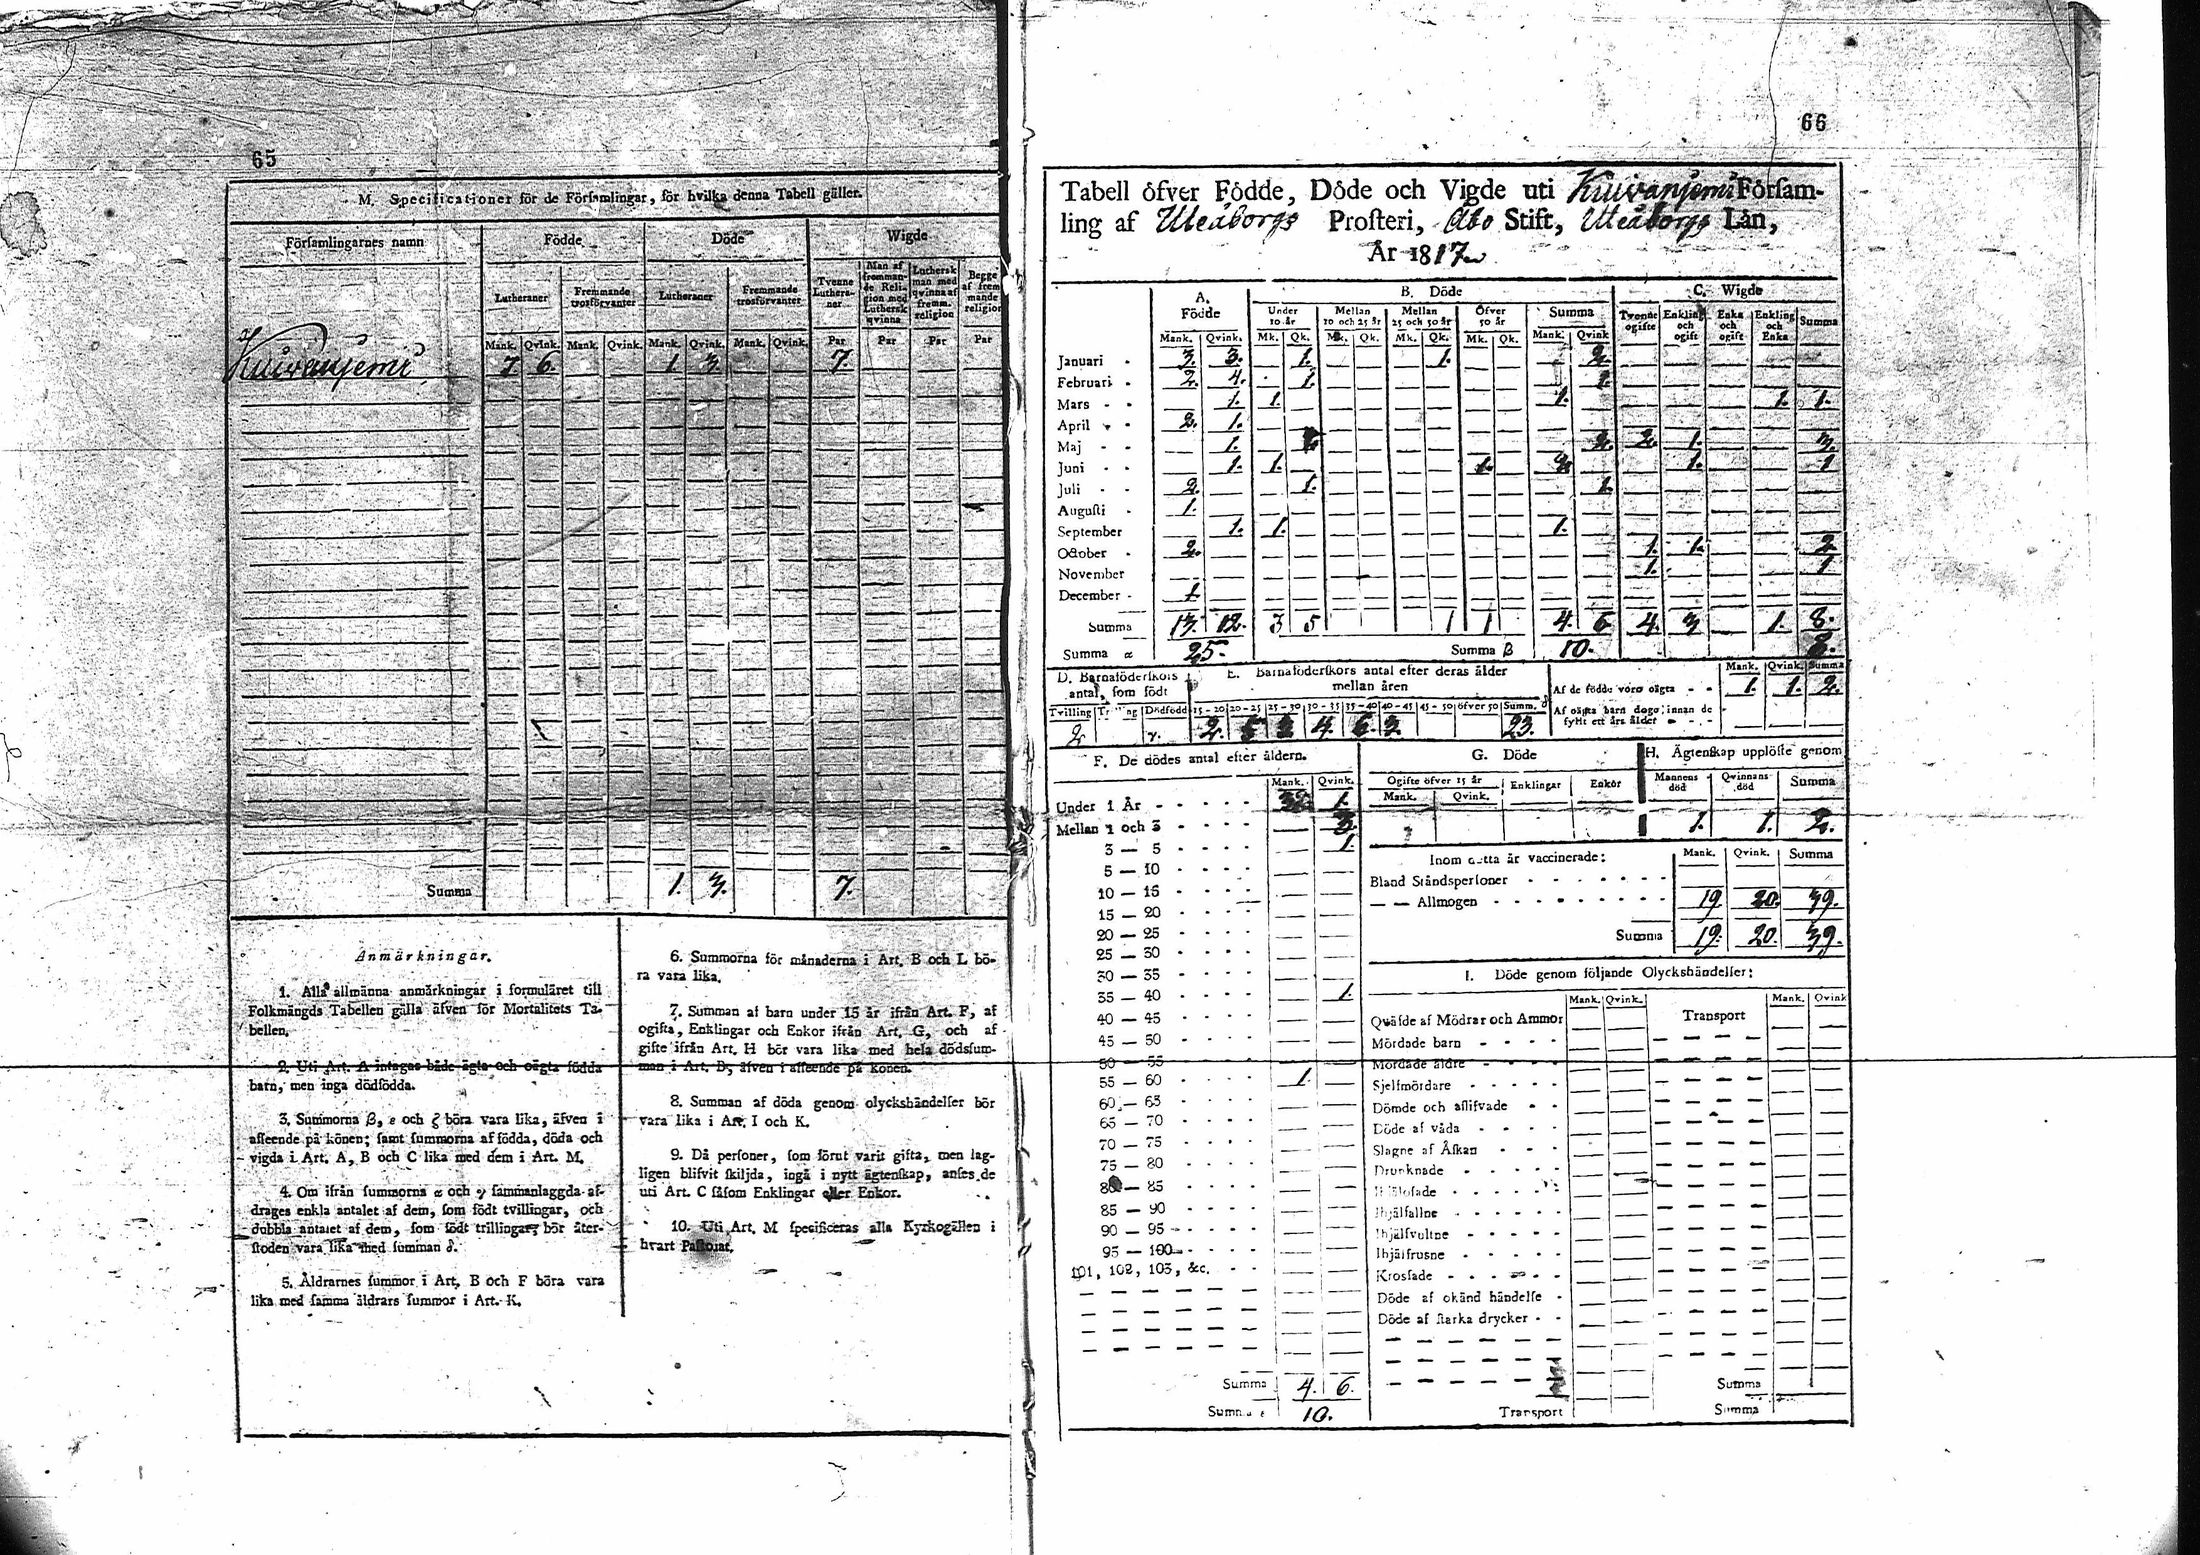 65
M. Specificationer för de Församlingar, för hvilka denna Tabell gäller.
Församlingarnes namn Födde Döde Wigde
Lutheraner Fremmande trosförvanter Lutheraner Fremmande trosförvanter Tvenne Lutheraner Man af fremmande Religion med Luthersk qvinna Luthersk man med qvinna af fremm. religion Begge af fremmande religion
Mank. Qvink. Mank. Qvink. Mank. Qvink. Mank. Qvink. Par Par Par Par
Kuivaniemi 7. 6. 1. 3. 7.
Summa 1. 3. 7.
Anmärkningar.
1. Alla allmänna anmärkningar i formuläret till
Folkmängds Tabellen gälla äfven för Mortalitets Ta-
bellen.
2. Uti Art. A intagas både ägta och oägta födda
barn, men inga dödfödda.
3. Summorna β, ε och ζ böra vara lika, äfven i
afseende på könen; samt summorna af födda, döda och
vigda i Art. A, B och C lika med dem i Art. M.
4. Om ifrån summorna α och γ sammanlaggda af-
drages enkla antalet af dem, som födt tvillingar, och
dubbla antalet af dem, som födt trillingar, bör åter-
stoden vara lika med summan δ.
5. Åldrarnes summor i Art. B och F böra vara
lika med samma åldrars summor i Art. K.
6. Summorna för månaderna i Art. B och L bö-
ra vara lika.
7. Summan af barn under 15 år ifrån Art. F, af
ogifta, Enklingar och Enkor ifrån Art. G, och af
gifte ifrån Art. H bör vara lika med hela dödssum-
man i Art. B, äfven i afseende på könen.
8. Summan af döda genom olyckshändelser bör
vara lika i Art. I och K.
9. Då personer, som förut varit gifta, men lag-
ligen blifvit skiljda, ingå i nytt ägtenskap, anses de
uti Art. C såsom Enklingar eller Enkor.
10. Uti Art. M specificeras alla Kyrkogällen i
hvart Pastorat.
66
Tabell öfver Födde, Döde och Vigde uti Kuivaniemi Försam-
ling af Uleåborgs Prosteri, Åbo Stift, Uleåborgs Län,
År 1817.
A. Födde B. Döde C. Wigde
Under 10 år Mellan 10 och 25 år Mellan 25 och 50 år Öfver 50 år Summa Tvenne ogifte Enkling och ogift Enka och ogift Enkling och Enka Summa
Mank. Qvink. Mk. Qk. Mk. Qk. Mk. Qk. Mk. Qk. Mank. Qvink
Januari 3. 3. 1. 1. 2.
Februari 2. 4. 1. 1.
Mars 1. 1. 1. 1. 1.
April 2. 1.
Maj 1. 2. 2. 1. 3.
Juni 1. 1. 1. 2. 1. 1
Juli 2. 1. 1.
Augusti 1.
September 1. 1. 1.
October 2. 1. 1. 2.
November 1. 1
December 1.
Summa 13. 12. 3 5 1 1 4. 6 4. 3 1. 8.
Summa α 25. Summa β 10. 8.
D. Barnaföderskors antal, som födt
Tvilling Dödfödd
2
E. Barnaföderskors antal efter deras ålder
mellan åren
15-20 20-25 25-30 30-35 35-40 40-45 45-50 öfver 50 Summ. δ
2. 5 3 4. 6. 3. 23.
Mank. Qvink. Summa
Af de födde voro oägta 1. 1. 2.
Af oägta barn dogo innan de
fyllt ett års ålder
F. De dödes antal efter åldern.
Mank. Qvink.
Under 1 År 1.
Mellan 1 och 3 3.
3 — 5 1.
5 — 10
10 — 15
15 — 20
20 — 25
25 — 30
30 — 35
35 — 40 1.
40 — 45
45 — 50
50 — 55
55 — 60 1.
60 — 65
65 — 70
70 — 75
75 — 80
80 — 85
85 — 90
90 — 95
95 — 100
101, 102, 103, &c.
Summa 4. 6.
Summa ε 10.
G. Döde
Ogifte öfver 15 år Enklingar Enkor
Mank. Qvink.
H. Ägtenskap upplöste genom
Mannens död Qvinnans död Summa
1. 1. 2.
Inom detta år vaccinerade: Mank. Qvink. Summa
Bland Ståndspersoner
— — Allmogen 19. 20. 39.
Summa 19. 20. 39.
I. Döde genom följande Olyckshändelser:
Mank. Qvink. Mank. Qvink
Qväfde af Mödrar och Ammor Transport
Mördade barn
Mördade äldre
Sjelfmördare
Dömde och aflifvade
Döde af våda
Slagne af Åskan
Drunknade
Ihjälfallne
Ihjälsvultne
Ihjälfrusne
Krossade
Döde af okänd händelse
Döde af starka drycker
Summa
Transport Summa